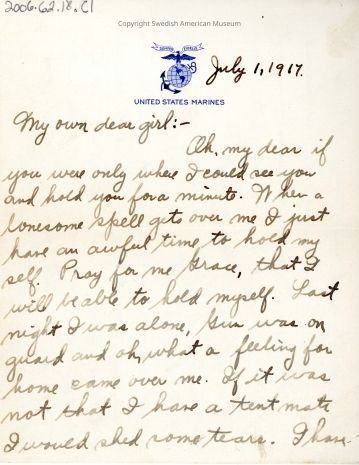 2006.62.18.C1
Copyright Swedish American Museum
SEMPER FIDELIS
July 1, 1917.
UNITED STATES MARINES
My own dear girl:-
Oh, my dear if
you were only where I could see you
and hold you for a minute. When a
lonesome spell gets over me I just
have an awful time to hold my
self. Pray for me Grace, that I
will be able to hold myself. Last
night I was alone, Gun was on
guard and oh, what a feeling for
home came over me. If it was
not that I have a tent mate
I would shed some tears. I have